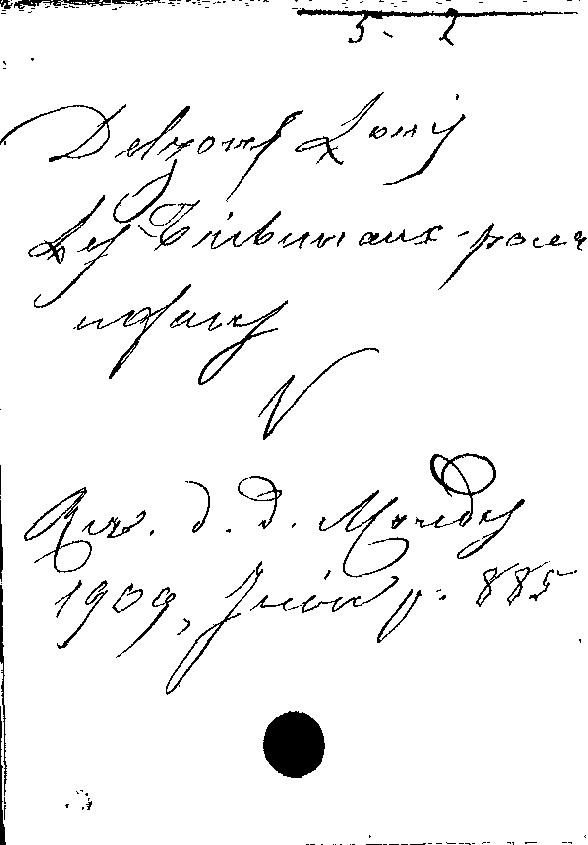 5- 2
Delzons Louis
Les Tribunaux-pour
enfants
V
Rev. d. d. Mondes
1909, Juin p. 885